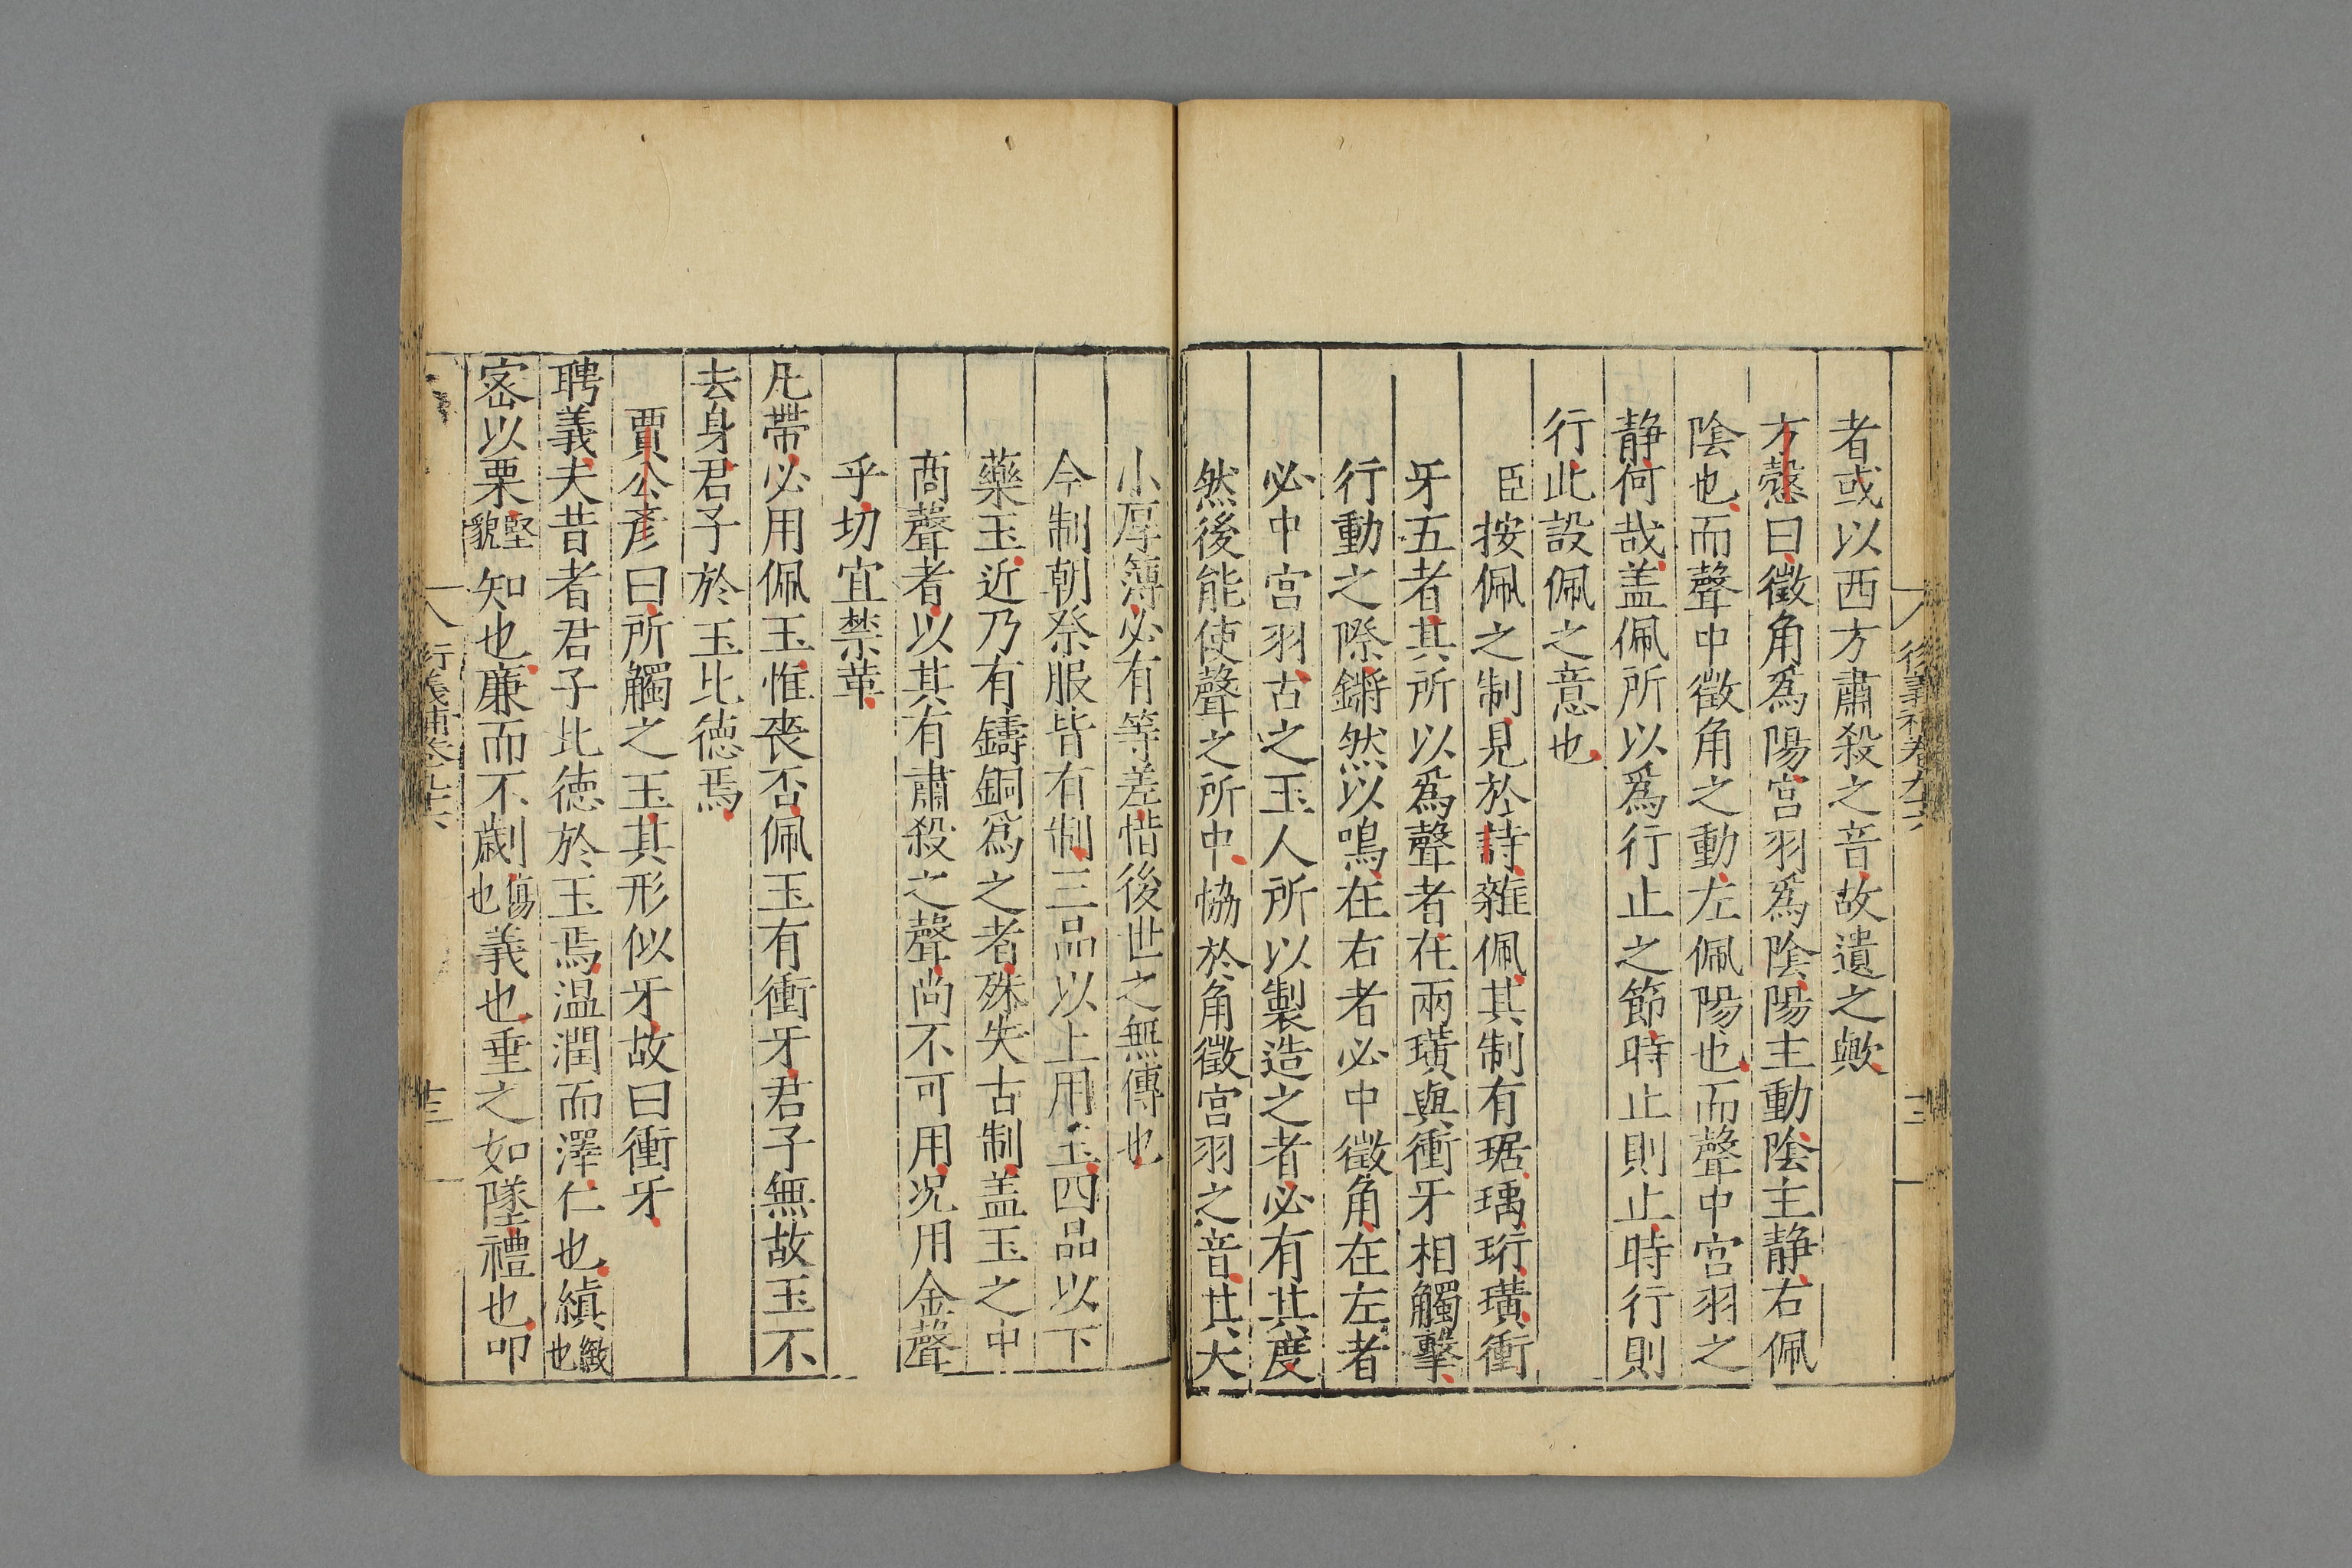 者或以西方肅殺之音故遺之歟
方愨曰徵角爲陽宮羽爲陰陽主動陰主静右佩
陰也而聲中徵角之動左佩陽也而聲中宮羽之
静何哉盖佩所以爲行止之節時止則止時行則
行此設佩之意也
臣按佩之制見於詩雜佩其制有琚瑀珩璜衝
牙五者其所以爲聲者在兩璜與衝牙相觸擊
行動之際鏘然以鳴在右者必中徵角在左者
必中宮羽古之玉人所以製造之者必有其度
然後能使聲之所中協於角徵宮羽之音其大
小厚薄必有等差惜後世之無傳也
今制朝祭服皆有制三品以上用玉四品以下
藥玉近乃有鑄銅爲之者殊失古制盖玉之中
商聲者以其有肅殺之聲尚不可用况用金聲
乎切宜禁革
凡帶必用佩玉惟喪否佩玉有衝牙君子無故玉不
去身君子於玉比徳焉
賈公彥曰所觸之玉其形似牙故曰衝牙
聘義夫昔者君子比徳於玉焉温潤而澤仁也縝緻也
宻以栗堅貌知也廉而不劌傷也義也垂之如墜禮也叩